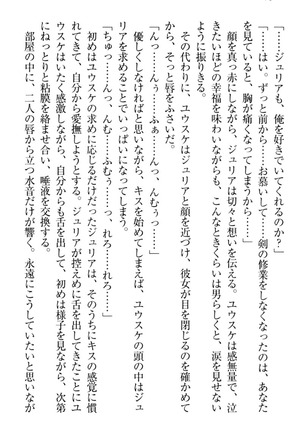 「……ジュリアも、俺を好きでいてくれるのか？」
「……はい。ずっと前から……お慕いして……剣の修業をしなくなったのは、あなた
を見ていると、胸が痛くなってしまうから……」
顔を真っ赤にしながら、ジュリアは切々と想いを伝える。ユウスケは感無量で、泣
きたいほどの幸福を味わいながらも、こんなときくらいは男らしくと、涙を見せない
ように振りきる。
その代わりに、ユウスケはジュリアと顔を近づけ、彼女が目を閉じるのを確かめて
から、そっと唇をふさいだ。
「んっ……んぅ……ふぁ……んっ、んむぅ……」
優しくしなければと思いながら、キスを始めてしまえば、ユウスケの頭の中はジュ
リアを求めることでいっぱいになってしまう。
「ちゅっ……んっ、んむ……ふむぅ……っ、れろ……れろっ……」
初めはユウスケの求めに応じるだけだったジュリアは、そのうちにキスの感覚に慣
れてきて、自分から愛撫しようとする。ジュリアが控えめに舌を出してきたことにユ
ウスケはいたく感激しながら、自分からも舌を出して、初めは様子を見ながら、次第
にねっとりと粘膜を絡ませ合い、唾液を交換する。
部屋の中に、二人の唇から立つ水音だけが響く。永遠にこうしていたいと思いなが